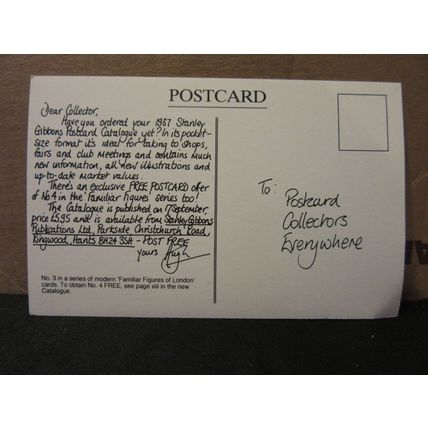 POSTCARD
Dear Collector,
Have you ordered your 1987 Stanley
Gibbons Postcard Catalogue yet? In its pocket-
size format it's ideal for taking to shops,
fairs and club meetings and contains much
new information, all new illustrations and
up-to-date market values.
There's an exclusive FREE POSTCARD offer
of No.4 in the 'Familiar Figures' series too!
The Catalogue is published on 17 September,
price £5.95 and is available from Stanley Gibbons
Publications Ltd., Parkside, Christchurch Road,
Ringwood, Hants BH24 3SH - POST FREE
yours Hugh
No. 3 in a series of modern 'Familiar Figures of London'
cards. To obtain No. 4 FREE, see page xiii in the new
Catalogue.
To:
Postcard
Collectors
Everywhere